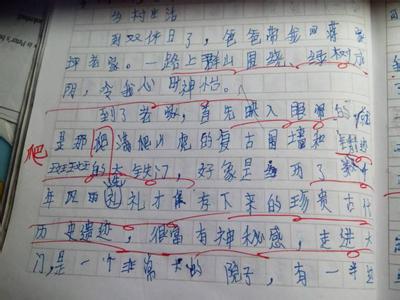 乡村生活
到双休日了，爸爸带我回蒋家
坪老家。一路上群山围绕、绿树成
阴，令我心旷神怡。
到了老家，首先映入眼的
是那爬满爬山虎的复古围墙和锈迹
斑斑的大铁门，好象是经历了数十
年的洗礼才保存下来的珍贵古代
历史遗迹，很富有神秘感，走进大
门，是一个非常大的院子，有一半是
爬